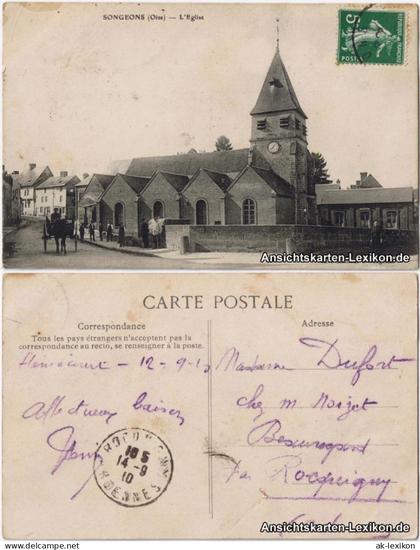 SONGEONS (Oise) — L'Eglise
5c
POSTES
Ansichtskarten-Lexikon.de
CARTE POSTALE
Correspondance
Tous les pays étrangers n'acceptent pas la
correspondance au recto, se renseigner à la poste.
Adresse
12-9-10
Affectueux baisers
ARDENNES
14-9
10
Madame Dufort
chez M
Beauregard
par Rocquigny
Ansichtskarten-Lexikon.de
© www.ak-lexikon.de
ak-lexikon